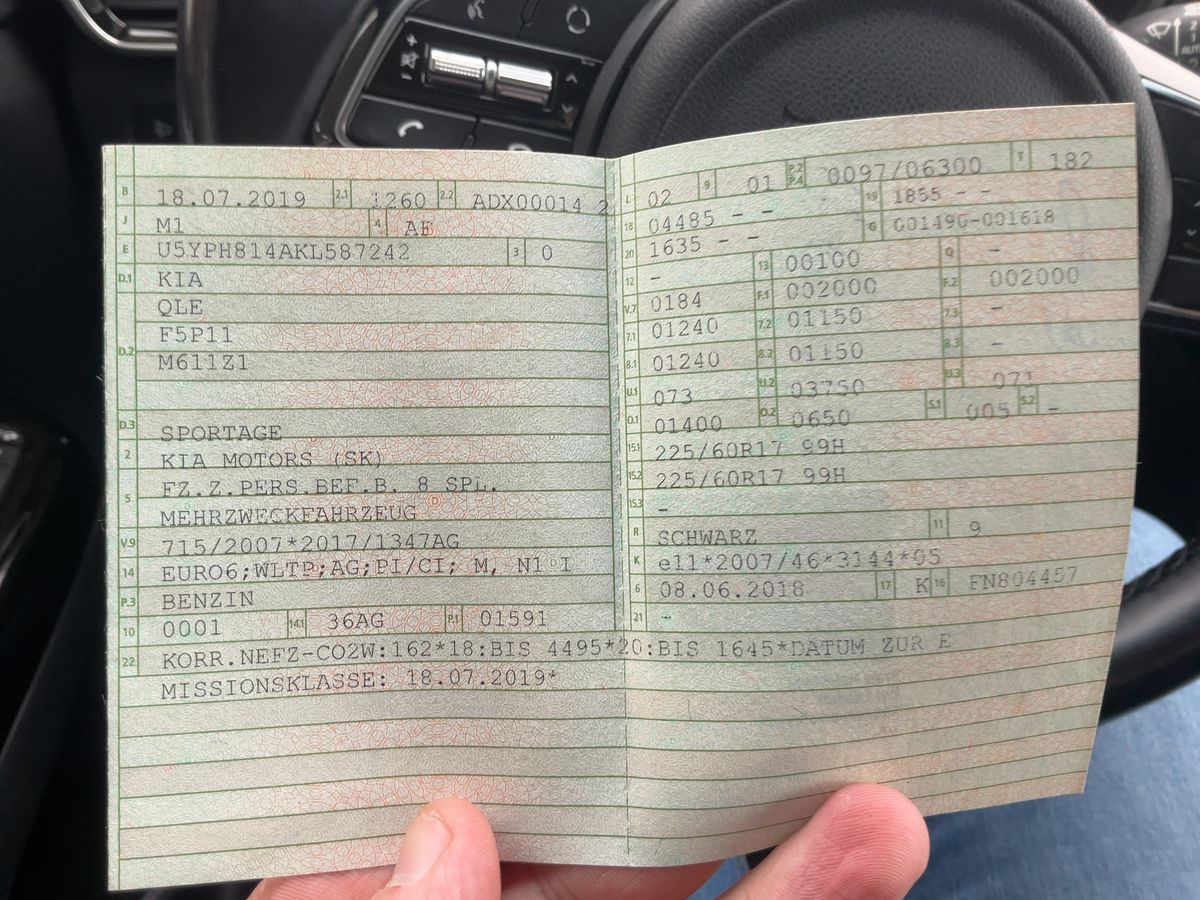 B 18.07.2019 2.1 1260 2.2 ADX00014 2
J M1 4 AE
E U5YPH814AKL587242 3 0
D.1 KIA
QLE
F5P11
D.2 M611Z1
D.3 SPORTAGE
2 KIA MOTORS (SK)
5 FZ.Z.PERS.BEF.B. 8 SPL.
MEHRZWECKFAHRZEUG
V.9 715/2007*2017/1347AG
14 EURO6;WLTP;AG;PI/CI; M, N1 I
P.3 BENZIN
10 0001 14.1 36AG P.1 01591
L 02 9 01 P.2 P.4 0097/06300 T 182
18 04485 - - 19 1855 - -
20 1635 - - G 001490-001618
12 - 13 00100 Q -
V.7 0184 F.1 002000 F.2 002000
7.1 01240 7.2 01150 7.3 -
8.1 01240 8.2 01150 8.3 -
U.1 073 U.2 03750 U.3 071
O.1 01400 O.2 0650 S.1 005 S.2 -
15.1 225/60R17 99H
15.2 225/60R17 99H
15.3 -
R SCHWARZ 11 9
K e11*2007/46*3144*05
6 08.06.2018 17 K 16 FN804457
21 -
22 KORR.NEFZ-CO2W:162*18:BIS 4495*20:BIS 1645*DATUM ZUR E
MISSIONSKLASSE: 18.07.2019*